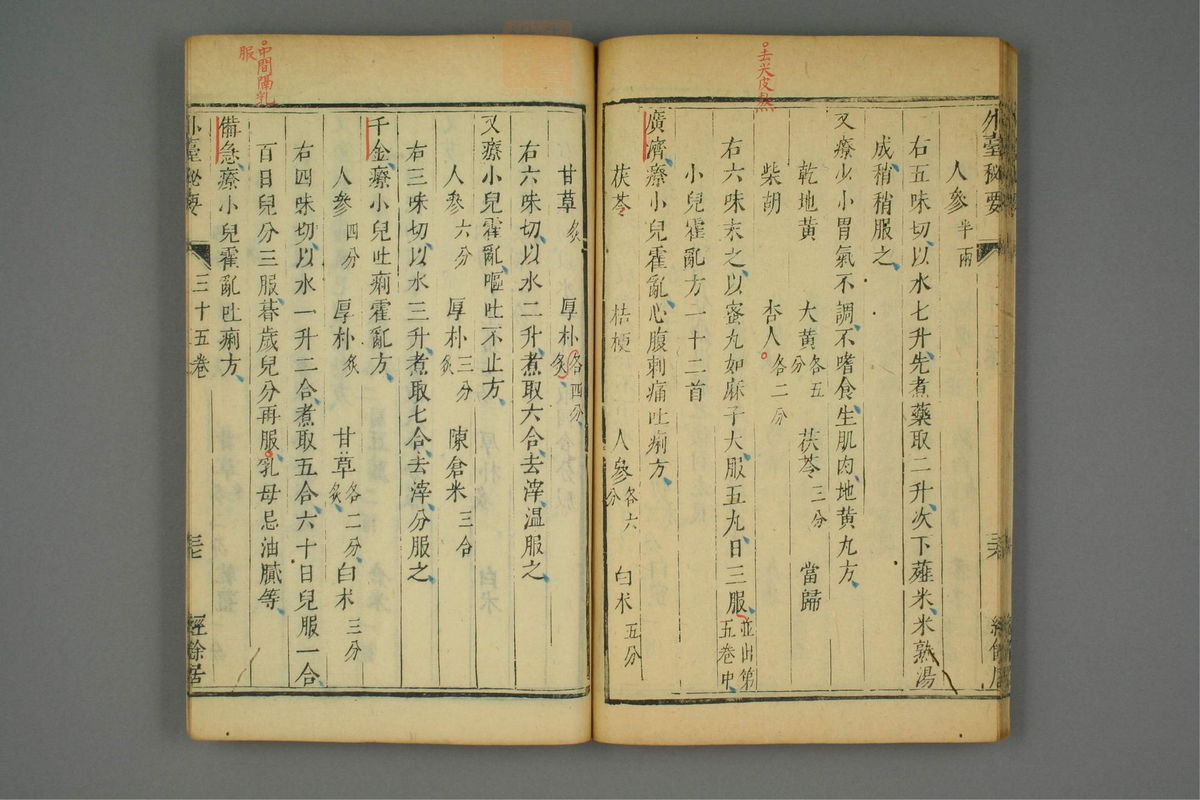 去尖皮熬
外臺秘要
人參半兩
右五味切以水七升先煮藥取二升次下薤米米熟湯
成稍稍服之
又療少小胃氣不調不嗜食生肌肉地黃丸方
乾地黃 大黃各五分 茯苓三分 當歸
柴胡 杏人各二分
右六味末之以蜜丸如麻子大服五丸日三服並出第五卷中
小兒霍亂方一十二首
廣濟療小兒霍亂心腹刺痛吐痢方
茯苓 桔梗 人參各六分 白朮五分
甘草炙 厚朴各四分炙
右六味切以水二升煮取六合去滓溫服之
又療小兒霍亂嘔吐不止方
人參六分 厚朴三分炙 陳倉米三合
右三味切以水三升煮取七合去滓分服之
千金療小兒吐痢霍亂方
人參四分 厚朴炙 甘草各二分炙 白朮三分
右四味切以水一升二合煮取五合六十日兒服一合
百日兒分三服朞歲兒分再服乳母忌油膩等
中間隔乳
服
備急療小兒霍亂吐痢方
外臺秘要 三十五卷 經餘居